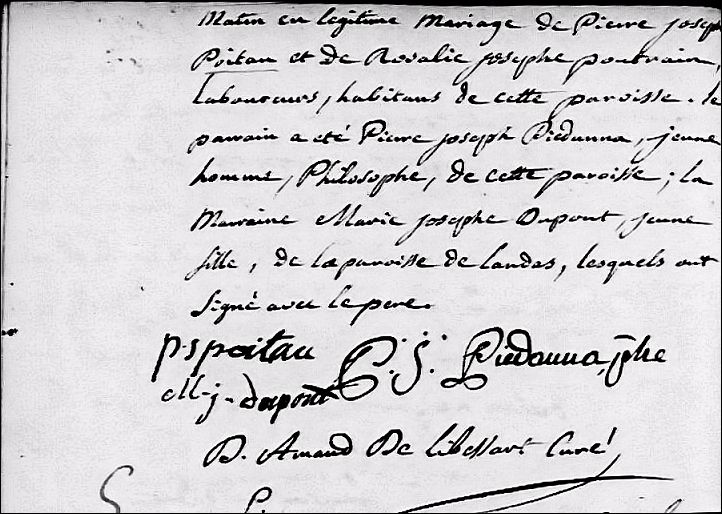 Matin en légitime Mariage de Pierre joseph
Poitau et de Rosalie josephe poutrain,
laboureurs, habitans de cette paroisse. le
parrain a eté Pierre joseph Piedanna, jeune
homme, Philosophe, de cette paroisse ; la
Marraine Marie josephe Dupont, jeune
fille, de la paroisse de landas, lesquels ont
signé avec le pere.
p-j poitau P. J. Piedanna, phe
M-j-dupont
D. Amand De libessart Curé